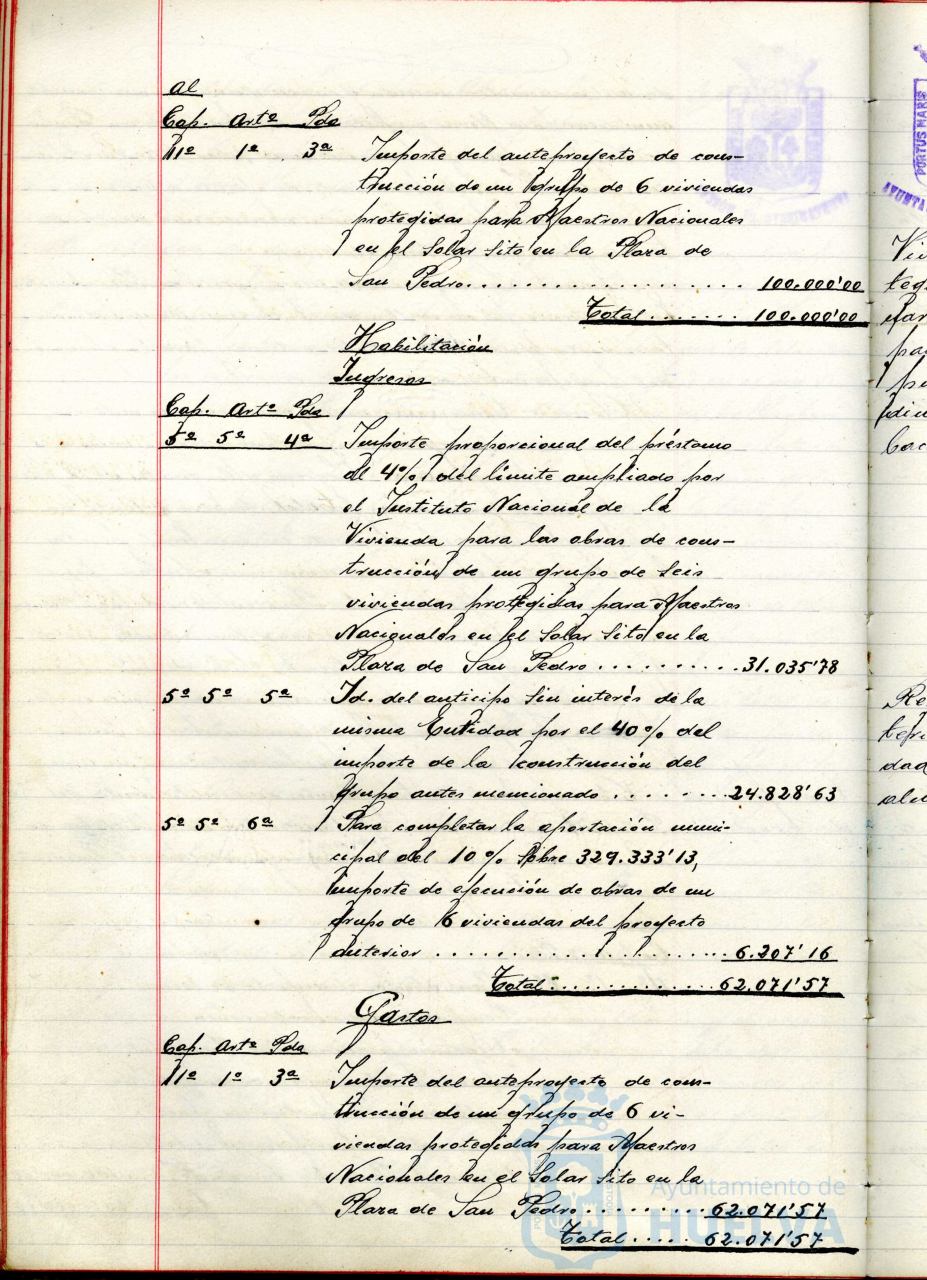 al
Cap. Artº Pda
11º 1º 3ª Importe del anteproyecto de cons-
trucción de un grupo de 6 viviendas
protegidas para Maestros Nacionales
en el Solar Sito en la Plaza de
San Pedro................... 100.000'00
Total....... 100.000'00
Habilitación
Ingresos
Cap. Artº Pda
5º 5º 4ª Importe proporcional del préstamo
al 4% del límite ampliado por
el Instituto Nacional de la
Vivienda para las obras de cons-
trucción de un grupo de Seis
viviendas protegidas para Maestros
Nacionales en el Solar Sito en la
Plaza de San Pedro..........31.035'78
5º 5º 5ª Id. del anticipo Sin interés de la
misma Entidad por el 40% del
importe de la construcción del
grupo antes mencionado........24.828'63
5º 5º 6ª Para completar la aportación muni-
cipal del 10% Sobre 329.333'13,
importe de ejecución de obras de un
grupo de 6 viviendas del proyecto
anterior.....................6.207'16
Total..............62.071'57
Gastos
Cap. Artº Pda
11º 1º 3ª Importe del anteproyecto de cons-
trucción de un grupo de 6 vi-
viendas protegidas para Maestros
Nacionales en el Solar Sito en la
Plaza de San Pedro..........62.071'57
Total.....62.071'57
Ayuntamiento de
HUELVA
PORTUS MARIS